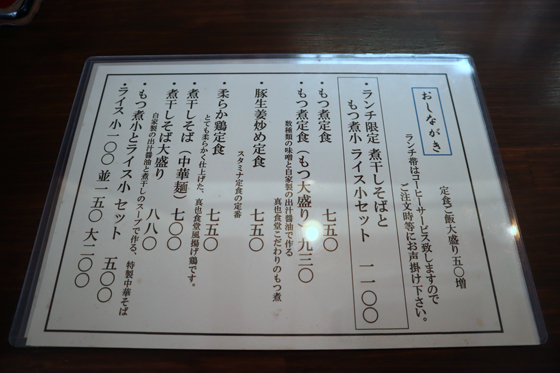 おしながき
定食ご飯大盛り五〇増
ランチ帯はコーヒーサービス致しますので
ご注文時等にお声掛け下さい。
・ランチ限定 煮干しそばと
もつ煮小 ライス小セット 一一〇〇
・もつ煮定食 七五〇
・もつ煮定食(もつ大盛り)九三〇
数種類の味噌と自家製の出汁醤油で作る
真也食堂こだわりのもつ煮
・豚生姜炒め定食 七五〇
スタミナ定食の定番
・柔らか鶏定食 七五〇
とても柔らかく仕上げた、真也食堂風揚げ鶏です。
・煮干しそば(中華麺)七〇〇
・煮干しそば大盛り 八八〇
自家製の出汁醤油と煮干しのスープで作る、特製中華そば
・もつ煮小とライス小 セット 五〇〇
・ライス 小一〇〇 並一五〇 大二〇〇